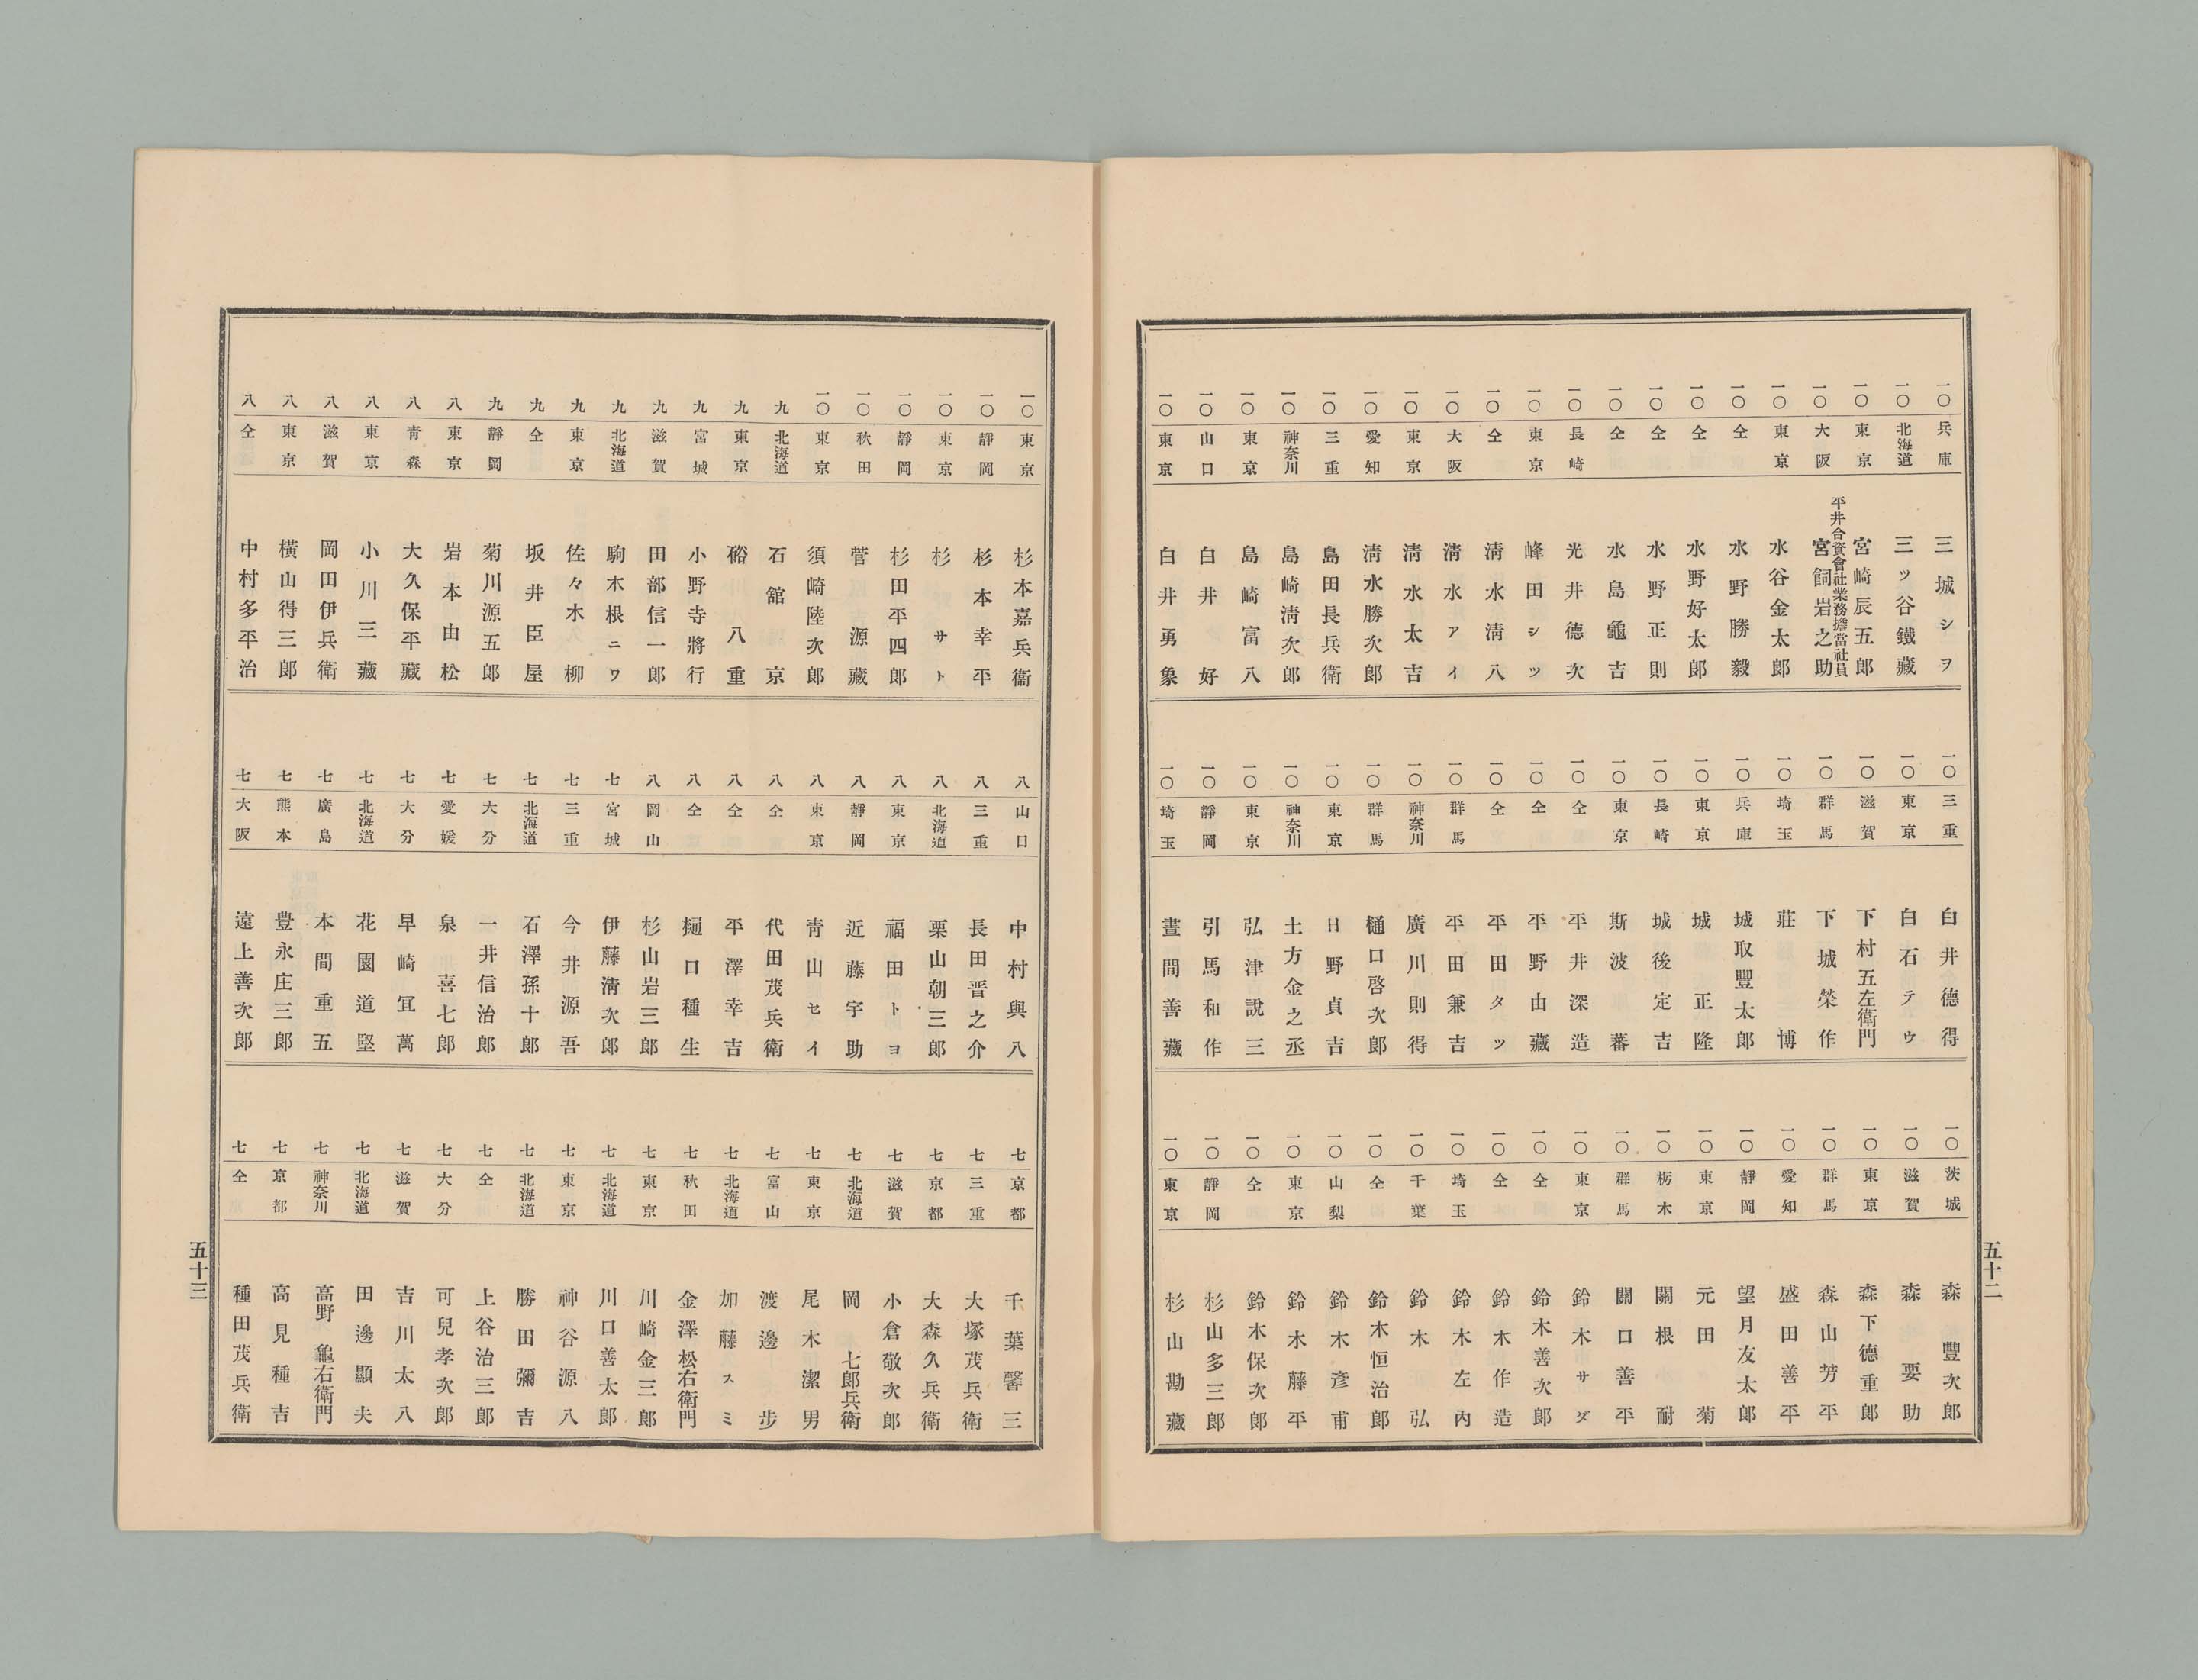 一〇 兵庫 三城シヲ
一〇 北海道 三ッ谷鐵藏
一〇 東京 宮崎辰五郎
一〇 大阪 平井合資會社業務擔當社員 宮飼岩之助
一〇 東京 水谷金太郎
一〇 仝 水野勝毅
一〇 仝 水野好太郎
一〇 仝 水野正則
一〇 仝 水島龜吉
一〇 長崎 光井德次
一〇 東京 峰田シツ
一〇 仝 淸水淸八
一〇 大阪 淸水アイ
一〇 東京 淸水太吉
一〇 愛知 淸水勝次郎
一〇 三重 島田長兵衛
一〇 神奈川 島崎淸次郎
一〇 東京 島崎富八
一〇 山口 白井好
一〇 東京 白井勇象
一〇 三重 白井德得
一〇 東京 白石テウ
一〇 滋賀 下村五左衛門
一〇 群馬 下城榮作
一〇 埼玉 莊博
一〇 兵庫 城取豐太郎
一〇 東京 城正隆
一〇 長崎 城後定吉
一〇 東京 斯波蕃
一〇 仝 平井深造
一〇 仝 平野由藏
一〇 仝 平田タツ
一〇 群馬 平田兼吉
一〇 神奈川 廣川則得
一〇 群馬 樋口啓次郎
一〇 東京 日野貞吉
一〇 神奈川 土方金之丞
一〇 東京 弘津說三
一〇 靜岡 引馬和作
一〇 埼玉 晝間善藏
一〇 茨城 森豐次郎
一〇 滋賀 森要助
一〇 東京 森下德重郎
一〇 群馬 森山芳平
一〇 愛知 盛田善平
一〇 靜岡 望月友太郎
一〇 東京 元田菊
一〇 栃木 關根耐
一〇 群馬 關口善平
一〇 東京 鈴木サダ
一〇 仝 鈴木善次郎
一〇 仝 鈴木作造
一〇 埼玉 鈴木左內
一〇 千葉 鈴木弘
一〇 仝 鈴木恒治郎
一〇 山梨 鈴木彥甫
一〇 東京 鈴木藤平
一〇 仝 鈴木保次郎
一〇 靜岡 杉山多三郎
一〇 東京 杉山勘藏
五十二
一〇 東京 杉本嘉兵衞
一〇 靜岡 杉本幸平
一〇 東京 杉サト
一〇 靜岡 杉田平四郎
一〇 秋田 菅源藏
一〇 東京 須崎陸次郎
九 北海道 石舘京
九 東京 硲八重
九 宮城 小野寺將行
九 滋賀 田部信一郎
九 北海道 駒木根ニワ
九 東京 佐々木柳
九 仝 坂井臣屋
九 靜岡 菊川源五郎
八 東京 岩本由松
八 青森 大久保平藏
八 東京 小川三藏
八 滋賀 岡田伊兵衛
八 東京 橫山得三郎
八 仝 中村多平治
八 山口 中村與八
八 三重 長田晋之介
八 北海道 栗山朝三郎
八 東京 福田トヨ
八 靜岡 近藤宇助
八 東京 青山セイ
八 仝 代田茂兵衛
八 仝 平澤幸吉
八 仝 樋口種生
八 岡山 杉山岩三郎
七 宮城 伊藤淸次郎
七 三重 今井源吾
七 北海道 石澤孫十郎
七 大分 一井信治郎
七 愛媛 泉喜七郎
七 大分 早崎宜萬
七 北海道 花園道堅
七 廣島 本間重五
七 熊本 豊永庄三郎
七 大阪 遠上善次郎
七 京都 千葉馨三
七 三重 大塚茂兵衛
七 京都 大森久兵衛
七 滋賀 小倉敬次郎
七 北海道 岡七郎兵衛
七 東京 尾木潔男
七 富山 渡邊步
七 北海道 加藤スミ
七 秋田 金澤松右衛門
七 東京 川崎金三郎
七 北海道 川口善太郎
七 東京 神谷源八
七 北海道 勝田彌吉
七 仝 上谷治三郎
七 大分 可兒孝次郎
七 滋賀 吉川太八
七 北海道 田邊顯夫
七 神奈川 高野龜右衛門
七 京都 高見種吉
七 仝 種田茂兵衛
五十三